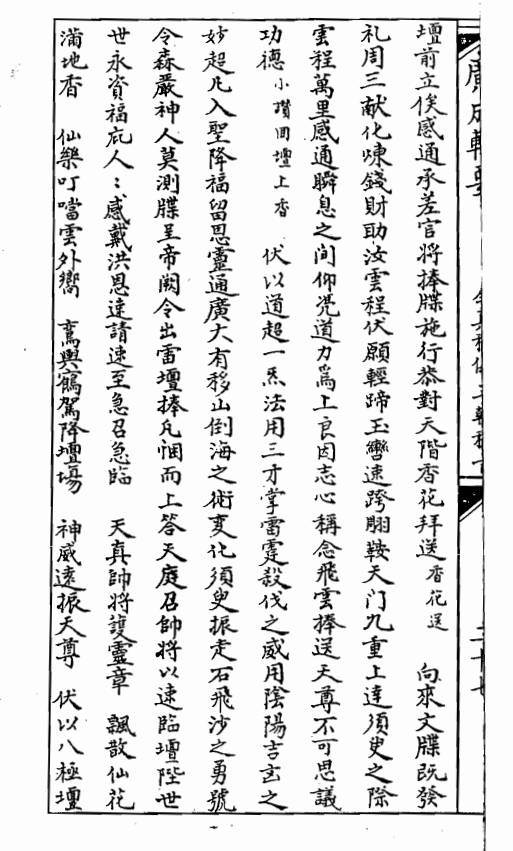 壇前立俟感通承差官將捧牒施行恭對天階香花拜送 香花送 向來文牒既發
礼周三献化煉錢財助汝雲程伏願輕蹄玉轡速跨鵰鞍天门九重上達須臾之際
雲程萬里感通瞬息之间仰凭道力爲上良因志心稱念飛雲捧送天尊不可思議
功德 小讃回壇上香 伏以道超一炁法用三才掌雷霆殺伐之威用陰陽吉玄之
妙超凡入聖降福留恩靈通廣大有移山倒海之術变化須臾振走石飛沙之勇號
令森嚴神人莫測牒呈帝阙令出雷壇捧凡悃而上答天庭召帥將以速臨壇陛世
世永資福庇人：感戴洪恩速請速至急召急臨 天真帥將護靈章 飄散仙花
滿地香 仙樂叮噹雲外嚮 鸞輿鶴駕降壇場 神威遠振天尊 伏以八極壇